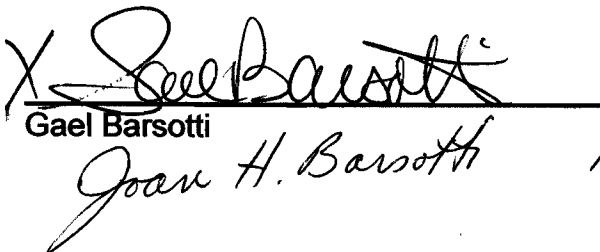 X Gael Barsotti
Gael Barsotti
Joan H. Barsotti